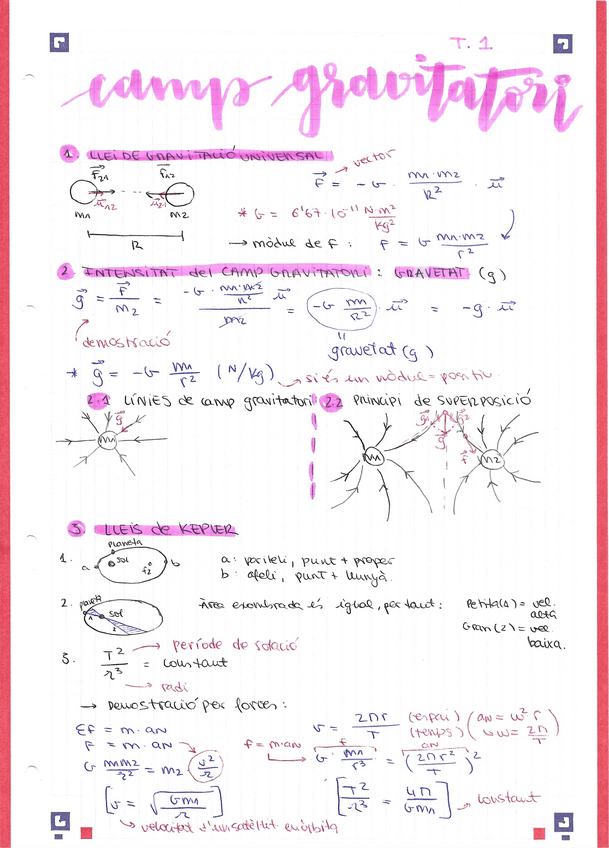 T. 1
camp gravitatori
1. LLEI DE GRAVITACIÓ UNIVERSAL
F⃗21 F⃗12
u⃗12 u⃗21
m1 m2
R
F⃗ = - G · m1·m2 / R² · u⃗ → vector
* G = 6'67·10⁻¹¹ N·m² / kg²
→ mòdul de F : F = G m1·m2 / r²
2. INTENSITAT del CAMP GRAVITATORI : GRAVETAT (g)
g⃗ = F⃗ / m2 = -G · m1·m2 / r² u⃗ / m2 = -G m1 / R² · u⃗ = -g · u⃗
demostració
gravetat (g)
* g⃗ = -G m1 / r² (N/kg) → si és un mòdul = positiu.
2.1 LÍNIES de camp gravitatori
g⃗
m1
2.2 Principi de SUPERPOSICIÓ
g⃗1 g⃗2
g⃗
m1 m2
3. LLEIS de KEPLER
1. planeta
a sol f2 b
a: periheli, punt + proper
b: afeli, punt + llunyà.
2. planeta
1 sol
2
Àrea exombrada és igual, per tant: Petita(1) = vel. alta
Gran(2) = vel. baixa.
3. T² / r³ = constant
→ període de rotació
→ radi
→ Demostració per forces:
ΣF = m·aN
F = m·aN
G m1m2 / r² = m2 v² / r
[v = √(Gm1 / r)]
→ velocitat d'un satèl·lit en òrbita
v = 2πr / T (espai) (temps) (aN = ω² r
↳ ω = 2π / T)
F = m·aN
F aN
G · m1 / r³ = (2πr² / T)²
[T² / r³ = 4π / Gm1] → constant